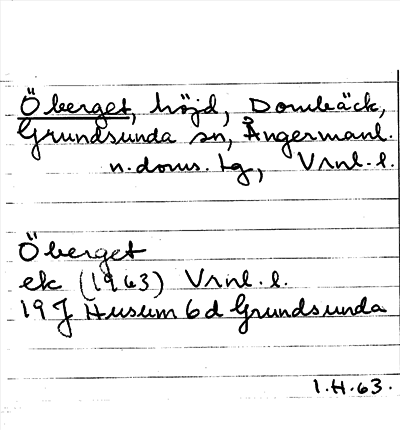 Öberget, höjd, Dombäck,
Grundsunda sn, Ångermanl.
n.doms. tg, Vrnl. l.
Öberget
ek (1963) Vrnl. l.
19J Husum 6d Grundsunda
1.H.63.